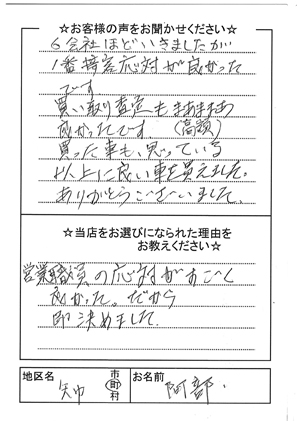 ☆お客様の声をお聞かせください☆
6会社ほどいきましたが
1番接客応対が良かった
です。
買い取り査定もまあまあ
良かったです (高額)
買った車も思っている
以上に良い車を買えました。
ありがとうございました。
☆当店をお選びになられた理由を
お教えください☆
営業職員の応対がすごく
良かった。だから
即決めました。
地区名 矢巾 市町村 お名前 阿部